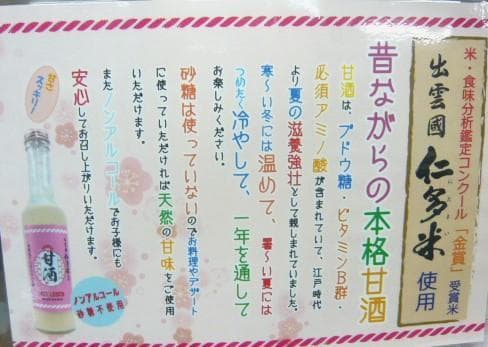 米・食味分析鑑定コンクール「金賞」受賞米
出雲國仁多米使用
昔ながらの本格甘酒
甘酒は、ブドウ糖・ビタミンB群・
必須アミノ酸が含まれていて、江戸時代
より夏の滋養強壮として親しまれていました。
寒〜い冬には温めて、暑〜い夏には
つめたく冷やして、一年を通して
お楽しみください。
砂糖は使っていないのでお料理やデザート
に使っていただければ天然の甘味をご使用
いただけます。
またノンアルコールでお子様にも
安心してお召し上がりいただけます。
甘さ
スッキリ!
甘酒
ノンアルコール
砂糖不使用